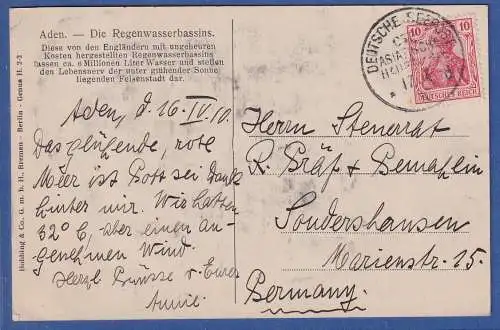 Aden. — Die Regenwasserbassins.
Diese von den Engländern mit ungeheuren
Kosten hergestellten Regenwasserbassins
fassen ca. 6 Millionen Liter Wasser und stellen
den Lebensnerv der unter glühender Sonne
liegenden Felsenstadt dar.
Aden, d. 16. IV. 10.
Das glühende, rote
Meer ist Gott sei Dank
hinter mir. Wir hatten
32° C, aber einen an-
genehmen Wind.
Herzl. Grüsse v. Eurer
Annie.
Hubbing & Co. G. m. b. H., Bremen - Berlin - Genua H. 2-3
DEUTSCHE SEEPOST
10 10
DEUTSCHES REICH
Herrn Steuerrat
R. Gräf & Gemahlin
Sondershausen
Marienstr. 15.
Germany.